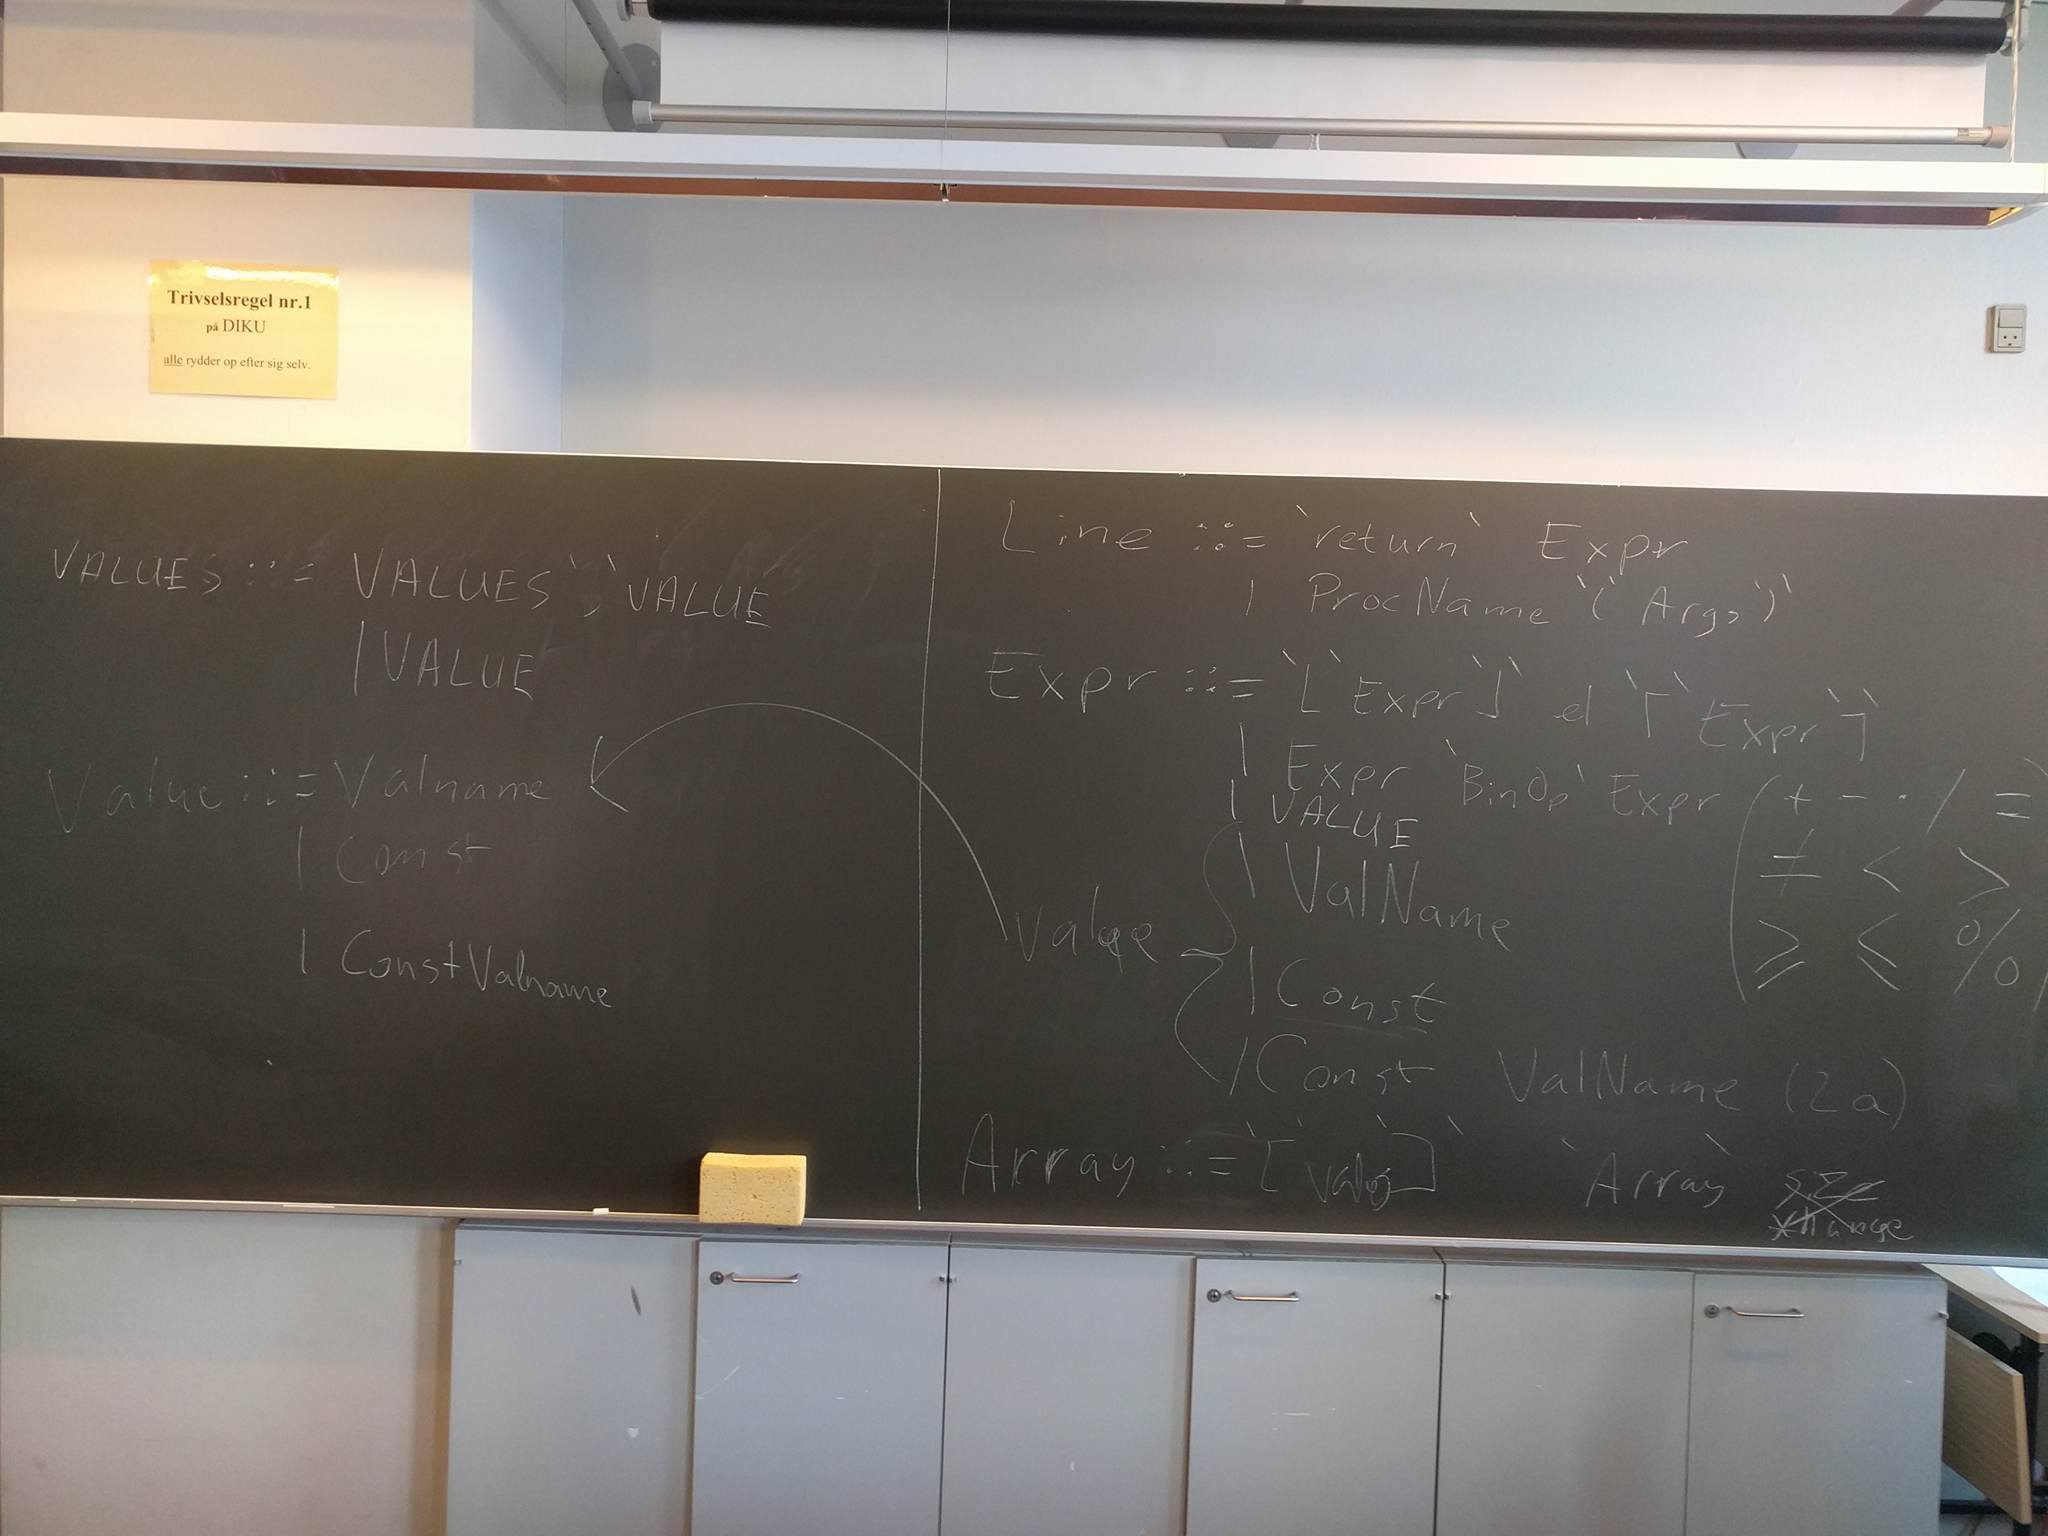 Trivselsregel nr.1
på DIKU
alle rydder op efter sig selv.
VALUES ::= VALUES `,` VALUE
| VALUE
Value ::= Valname
| Const
| ConstValname
Line ::= `return` Expr
| ProcName `(` Args `)`
Expr ::= `⌊` Expr `⌋` el `⌈` Expr `⌉`
| Expr `BinOp` Expr (+ - · / =
≠ < >
≥ ≤ %)
| VALUE
| ValName
Value
| Const
| Const ValName (2a)
Array ::= `[` `]` `Array` size